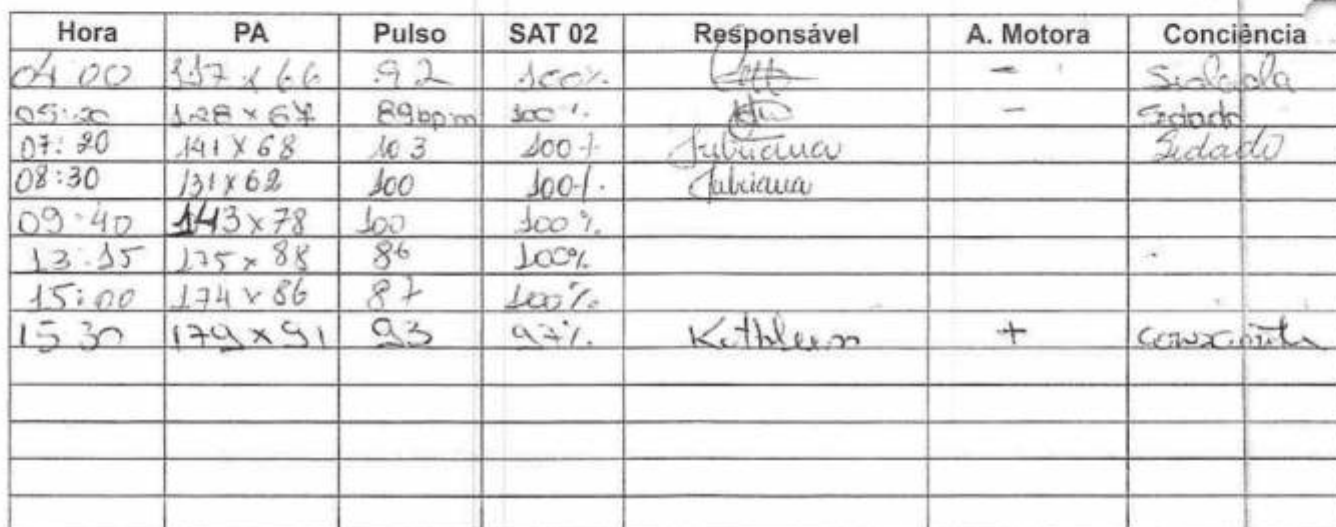 Hora PA Pulso SAT 02 Responsável A. Motora Conciência
04:00 117 x 66 92 100% - Sedada
05:20 128 x 67 89bpm 100% - Sedado
07:20 141 x 68 103 100% Sedado
08:30 131 x 62 100 100%
09:40 143 x 78 100 100%
13:15 175 x 88 86 100%
15:00 174 x 86 87 100%
15:30 179 x 91 93 97% Kethleen + consciente